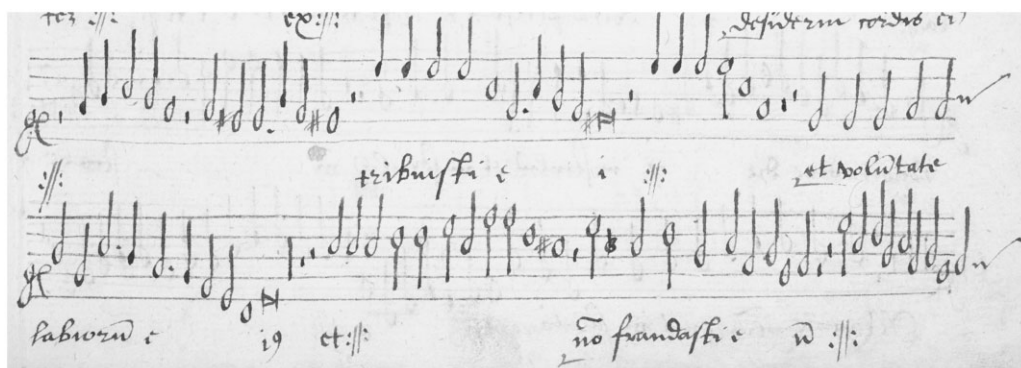 ter :||: ex :||: desiderm cordis ei9
:||: tribuisti e i :||: et volūtate
labiorū e i9 et :||: nō fraudasti e ū :||: